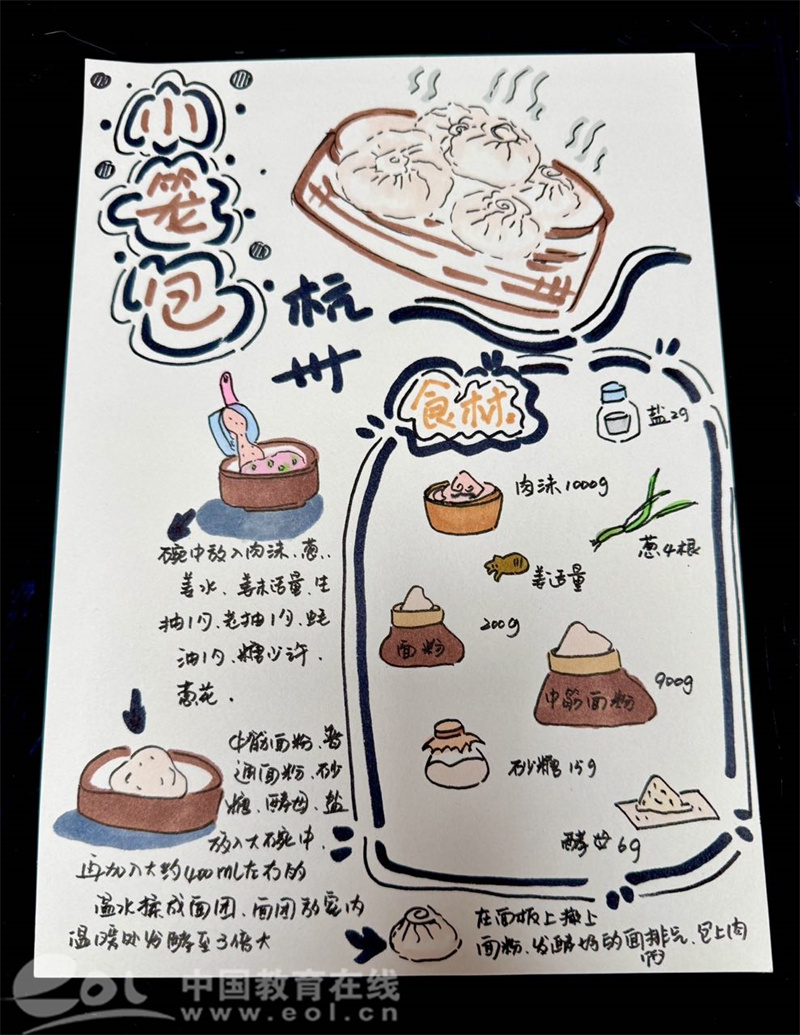 小
笼
包
杭
州
食材
盐2g
肉沫1000g
葱4根
姜适量
200g
面粉
900g
中筋面粉
砂糖15g
酵母6g
碗中放入肉沫、葱、
姜水、姜末适量、生
抽1勺、老抽1勺、蚝
油1勺、糖少许、
葱花.
中筋面粉、普
通面粉、砂
糖、酵母、盐
放入大碗中,
再加入大约400mL左右的
温水揉成面团,面团放室内
温暖处发酵至3倍大
在面板上撒上
面粉、发酵好的面排气、包上肉
中国教育在线
www.eol.cn
eol